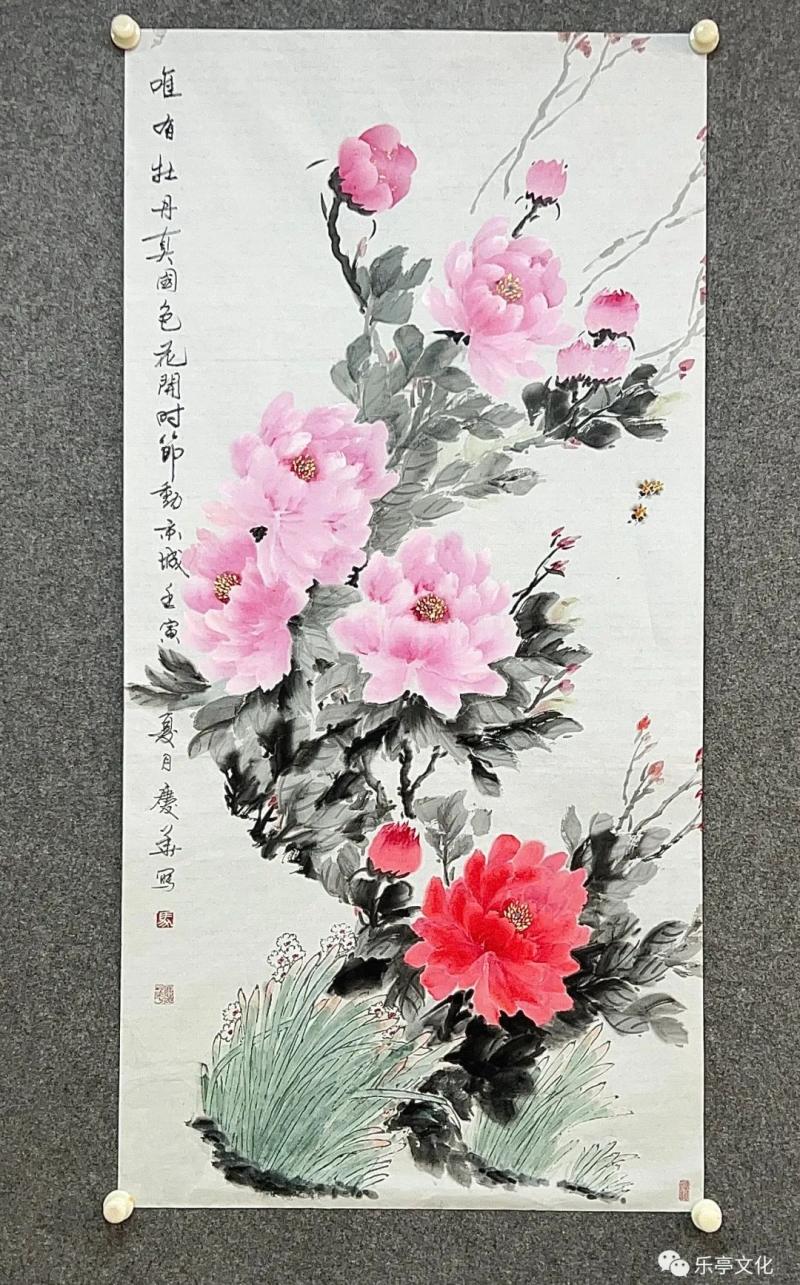 唯有牡丹真國色花開时節動京城壬寅
夏月慶華寫
乐亭文化